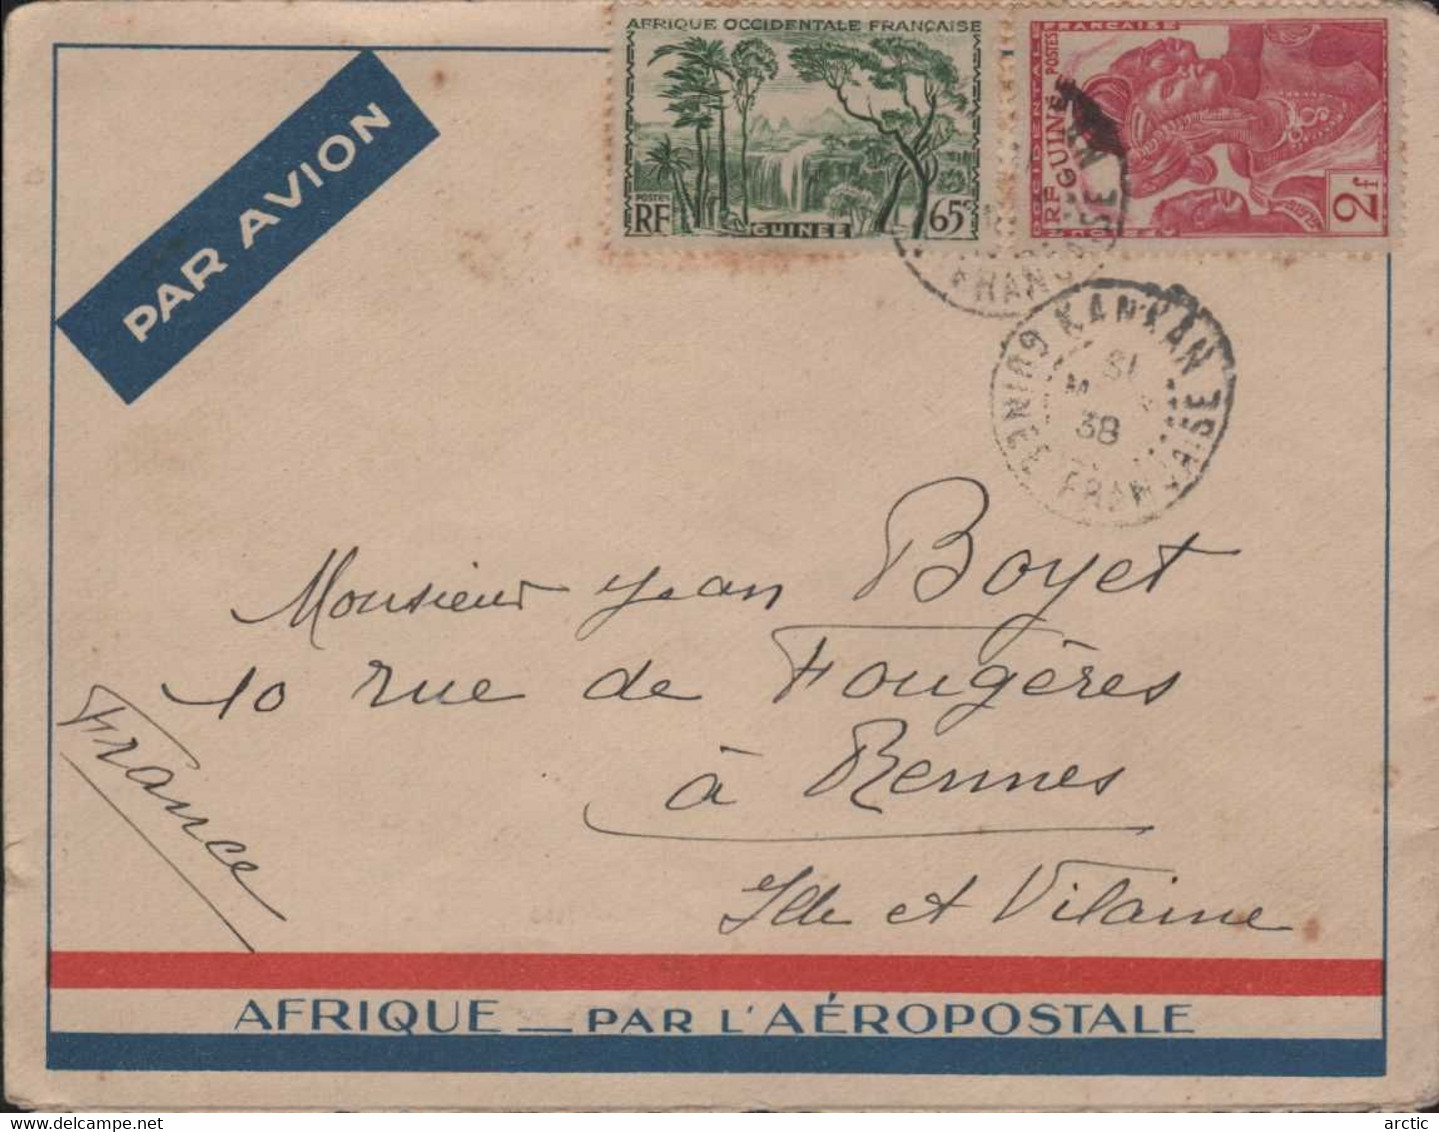 AFRIQUE OCCIDENTALE FRANÇAISE
POSTES
RF
GUINEE
65c
FRANÇAISE
POSTES
GUINÉE
RF
2f
FRANÇAISE
PAR AVION
KANKAN
GUINÉE FRANÇAISE
31
38
Monsieur Jean Boyet
10 rue de Fougères
à Rennes
Ille et Vilaine
France
AFRIQUE _ PAR L'AÉROPOSTALE
arctic